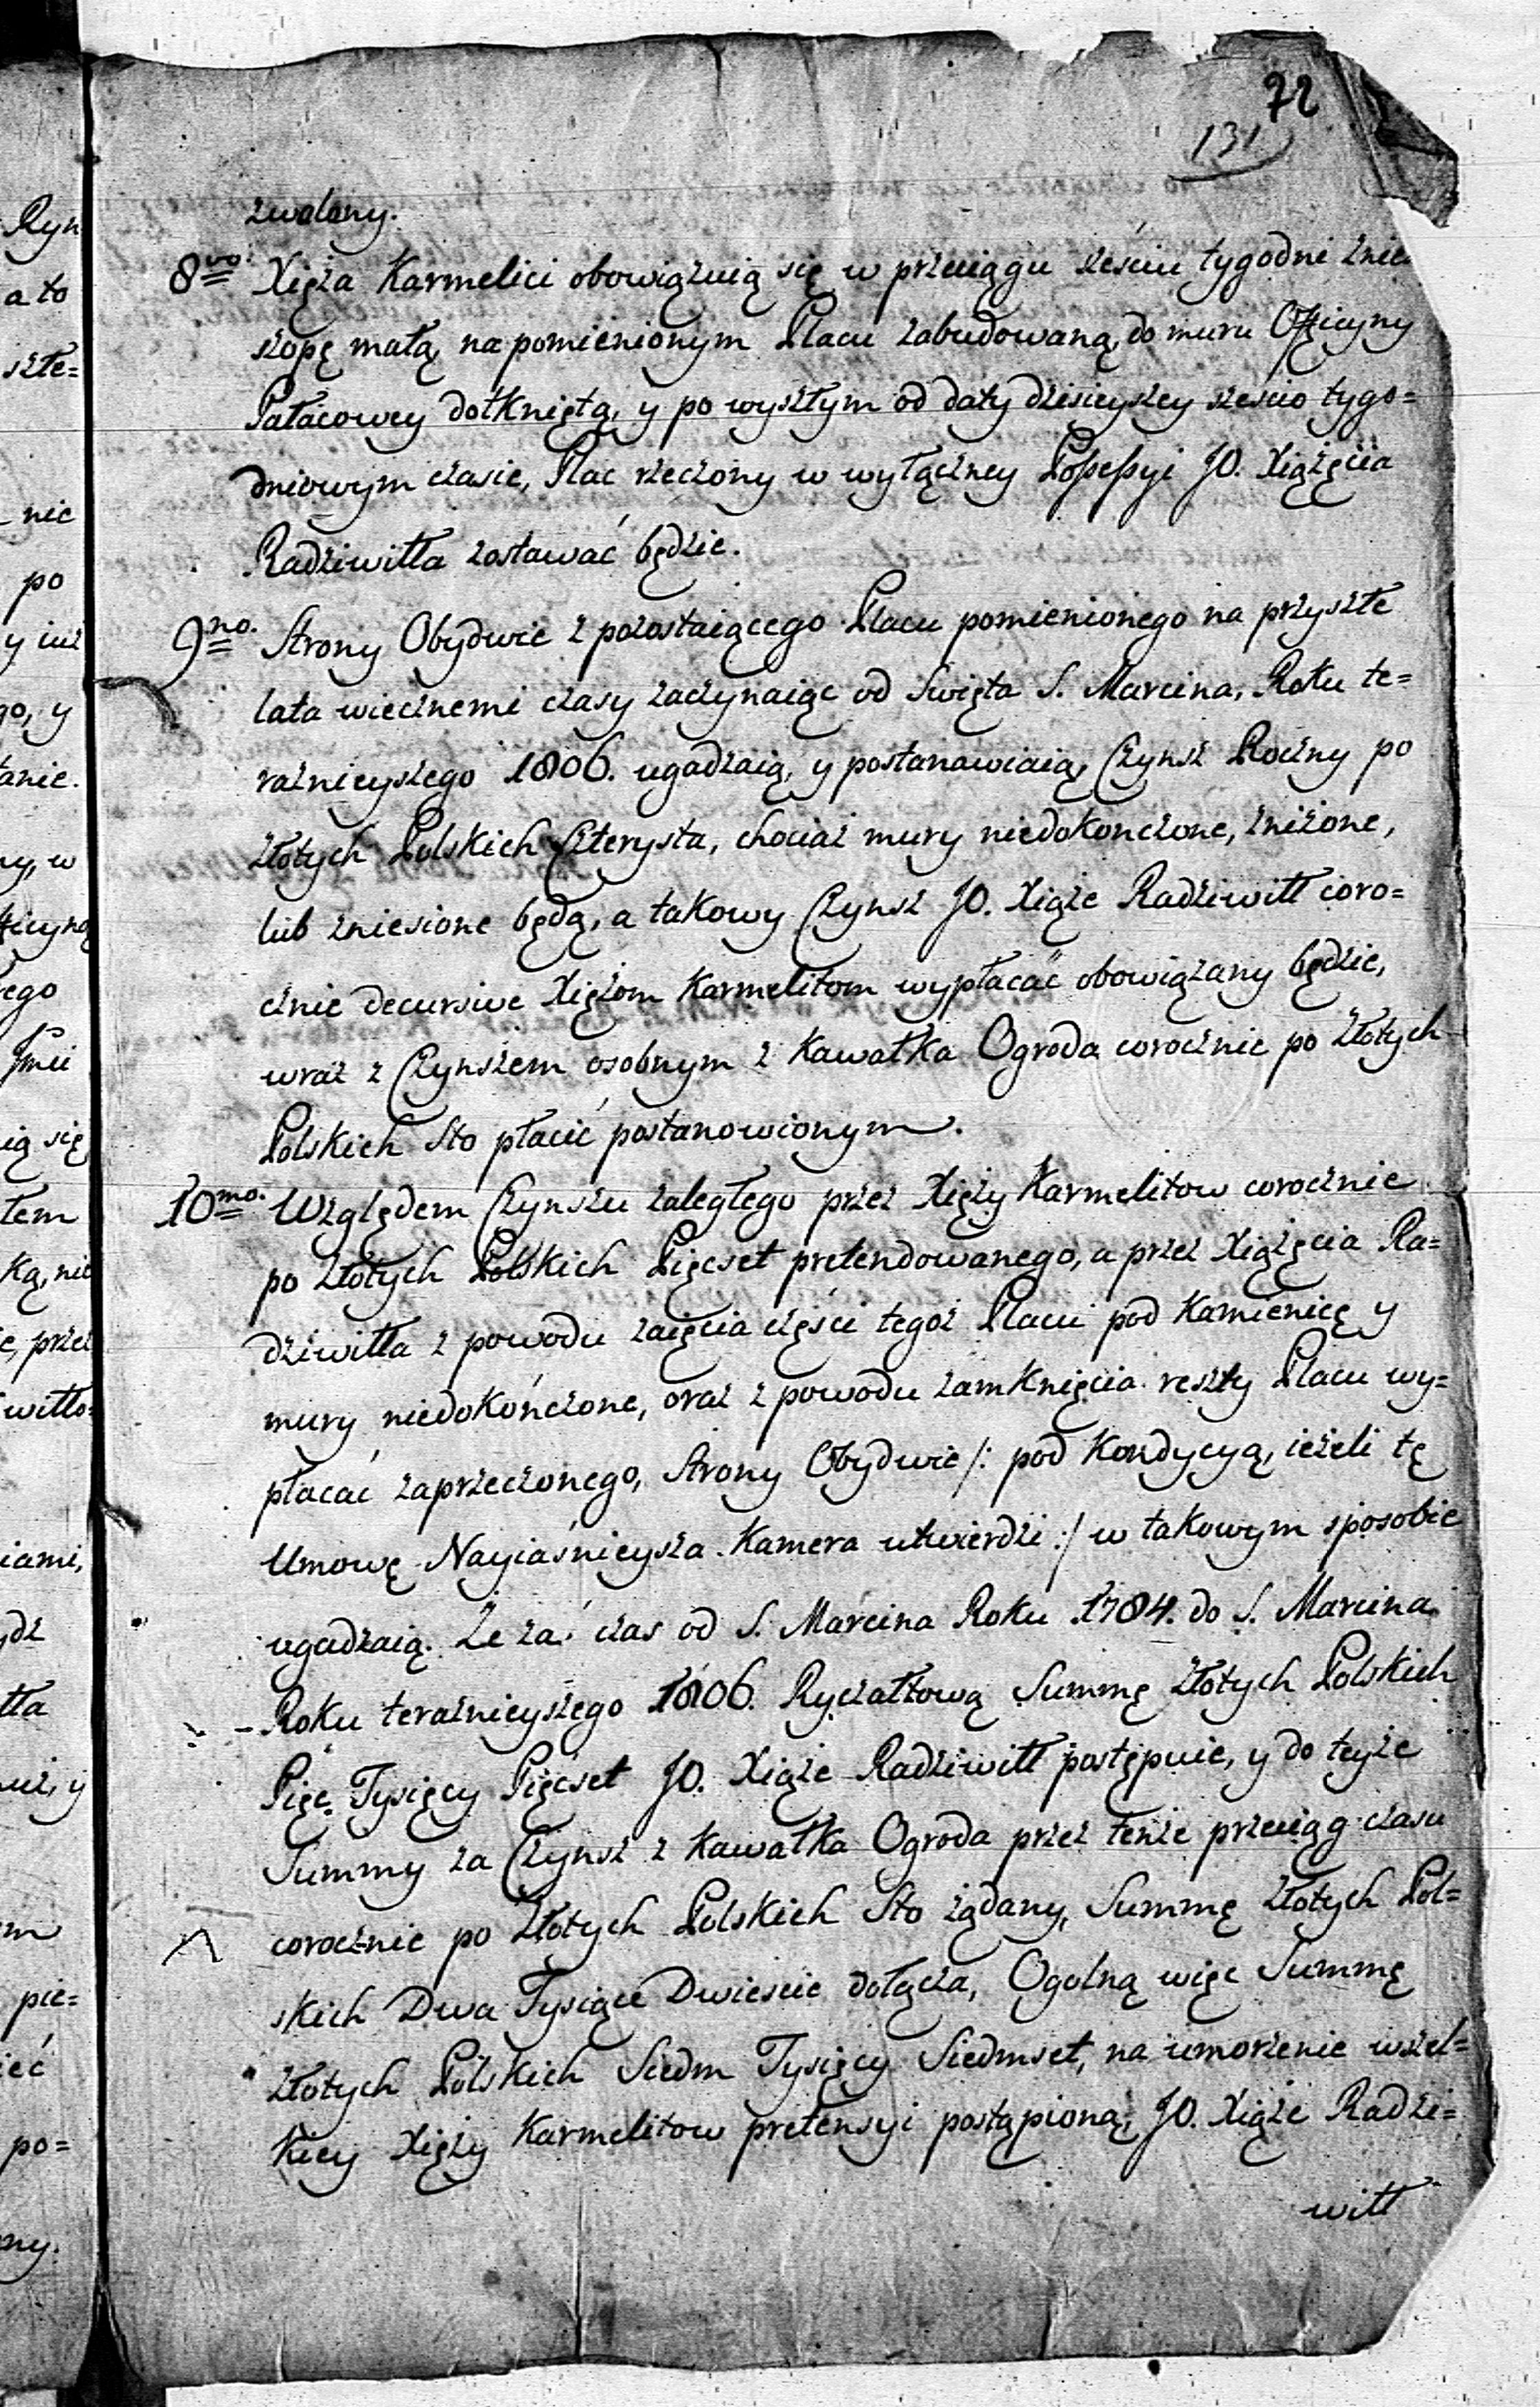 72
131
zwolony.
8vo. Xięża Karmelici obowiązuią się w przeciągu sześciu tygodni znie
szopę małą, na pomienionym Placu zabudowaną, do muru Officyny
Pałacowey dotkniętą, y po wyszłym od daty dzisieyszey sześcio tygo=
dniowym czasie, Plac rzeczony w wyłączney Possessyi JO. Xiążęcia
Radziwiłła zostawać będzie.
9no. Strony Obydwie z pozostaiącego Placu pomienionego na przyszłe
lata wiecznemi czasy zaczynaiąc od Święta S. Marcina, Roku te=
raźnieyszego 1806. ugadzaią, y postanawiaią, Czynsz Roczny po
złotych Polskich Czterysta, chociaż mury niedokonczone, zniżone,
lub zniesione będą, a takowy Czynsz JO. Xiąże Radziwiłł coro=
cznie decursive Xiężom Karmelitom wypłacać obowiązany będzie,
wraz z Czynszem osobnym z Kawałka Ogroda corocznie po Złotych
Polskich Sto płacić postanowionym.
10mo. Względem Czynszu zaległego przez Xięży Karmelitow corocznie
po Złotych Polskich Pięcset pretendowanego, a przez Xiążęcia Ra=
dziwiłła z powodu zaięcia części tegoż Placu pod Kamienicę y
mury niedokończone, oraz z powodu zamknięcia reszty Placu wy=
płacać zaprzeczonego, Strony Obydwie /: pod Kondycyą, ieżeli tę
Umowę Nayiaśnieysza Kamera utwierdzi :/ w takowym sposobie
ugadzaią. Że za czas od S. Marcina Roku 1784. do S. Marcina
Roku teraznieyszego 1806. Ryczałtową Summę Złotych Polskich
Pięc Tysięcy Pięcset JO. Xiąże Radziwiłł postępuie, y do teyże
Summy za Czynsz z Kawałka Ogroda przez tenże przeciąg czasu
corocznie po Złotych Polskich Sto żądany, Summę Złotych Pol=
skich Dwa Tysiące Dwieście dołącza, Ogolną więc Summę
Złotych Polskich Siedm Tysięcy Siedmset, na umorzenie wszel=
kiey Xięży Karmelitow pretensyi postąpioną, JO. Xiąże Radzi=
wiłł